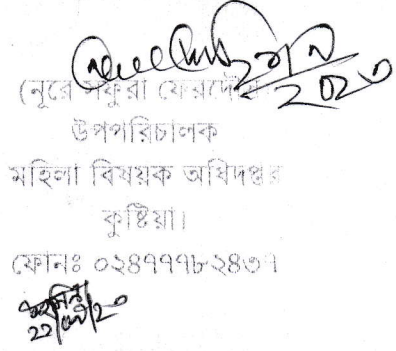 ২০২৩
(নূরে সফুরা ফেরদৌস)
উপপরিচালক
মহিলা বিষয়ক অধিদপ্তর
কুষ্টিয়া।
ফোনঃ ০২৪৭৭৭৮২৪৩৭